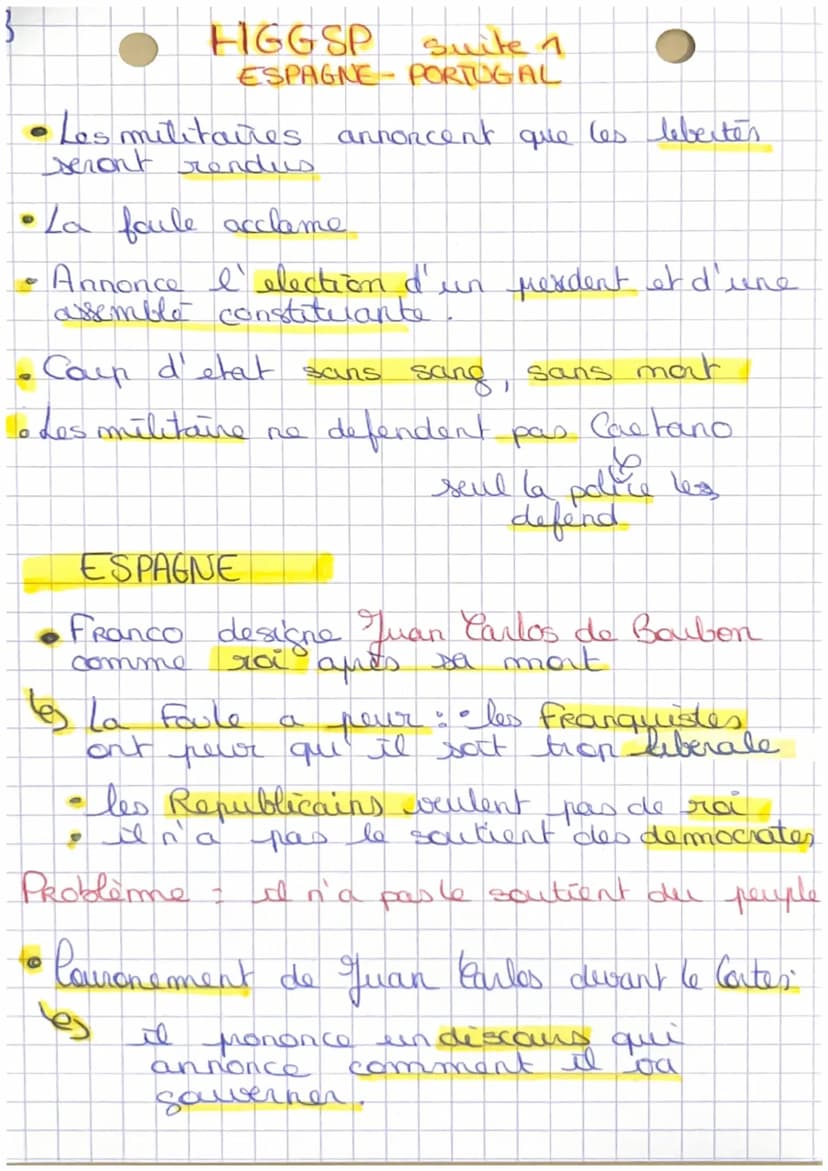 3
HGGSP suite 1
ESPAGNE - PORTUGAL
• Les militaires annoncent que les lebertés
seront rendus
• La foule acclame
• Annonce l'election d'un president et d'une
assemblé constituante.
• Coup d'etat sans sang, sans mort
• Les militaire ne defendent pas Caetano
seul la police les
defend
ESPAGNE
• Franco designe Juan Carlos de Bourbon
comme roi après sa mort
La foule a peur : • les franquistes
ont peur qu'il soit trop liberale
• les Republicains veulent pas de roi
• il n'a pas le soutient des democrates
Problème : il n'a pas le soutient du peuple
• Couronement de Juan Carlos devant le Cortes:
il prononce un discours qui
annonce comment il va
gouverner.